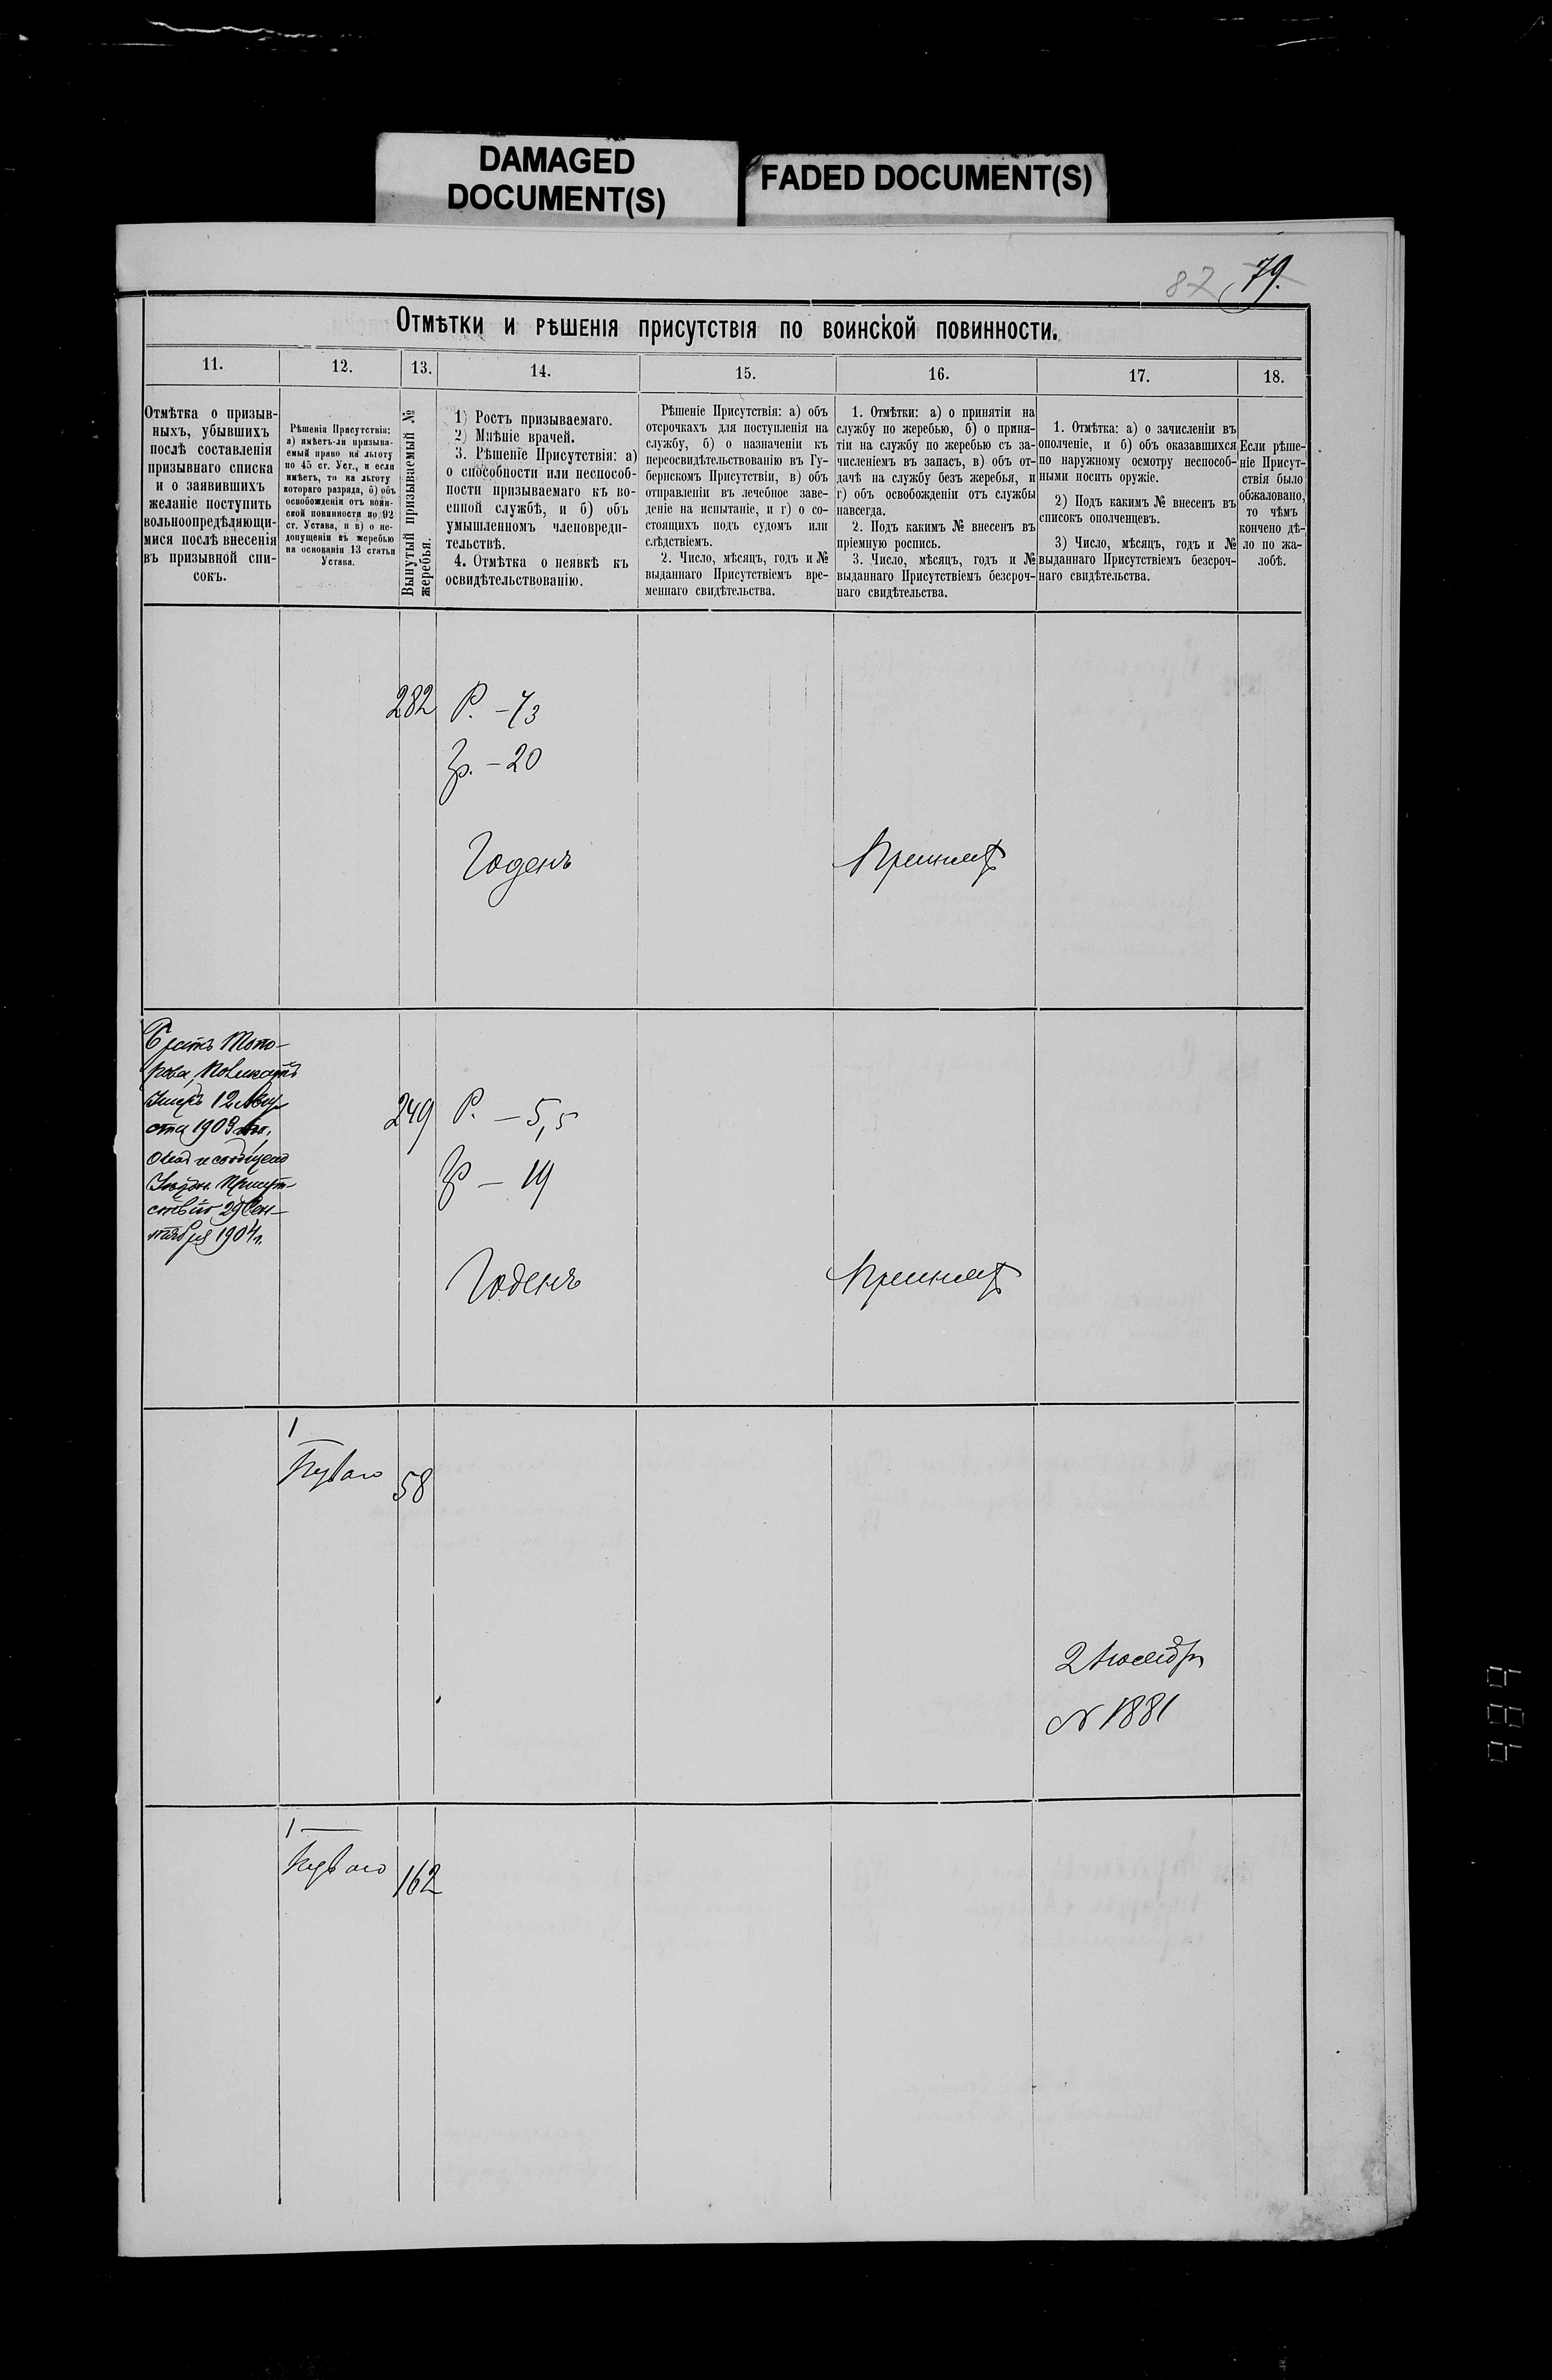 DAMAGED
DOCUMENT(S)
FADED DOCUMENT(S)
87 79.
Отмѣтки и рѣшенія присутствія по воинской повинности.
11.
12.
13.
14.
15.
16.
17.
18.
Отмѣтка о призыв-
ныхъ, убывшихъ
послѣ составленія
призывнаго списка
и о заявившихъ
желаніе поступить
вольноопредѣляющи-
мися послѣ внесенія
въ призывной спи-
сокъ.
Рѣшенія Присутствія:
а) имѣетъ-ли призыва-
емый право на льготу
по 45 ст. Уст., и если
имѣетъ, то на льготу
котораго разряда, б) объ
освобожденіи отъ воин-
ской повинности по 92
ст. Устава, и в) о не-
допущеніи къ жеребью
на основаніи 13 статьи
Устава.
Вынутый призываемый №
жеребья.
1) Ростъ призываемаго.
2) Мнѣніе врачей.
3. Рѣшеніе Присутствія: а)
о способности или неспособ-
ности призываемаго къ во-
енной службѣ, и б) объ
умышленномъ членовреди-
тельствѣ.
4. Отмѣтка о неявкѣ къ
освидѣтельствованію.
Рѣшеніе Присутствія: а) объ
отсрочкахъ для поступленія на
службу, б) о назначеніи къ
переосвидѣтельствованію въ Гу-
бернскомъ Присутствіи, в) объ
отправленіи въ лечебное заве-
деніе на испытаніе, и г) о со-
стоящихъ подъ судомъ или
слѣдствіемъ.
2. Число, мѣсяцъ, годъ и №
выданнаго Присутствіемъ вре-
меннаго свидѣтельства.
1. Отмѣтки: а) о принятіи на
службу по жеребью, б) о приня-
тіи на службу по жеребью съ за-
численіемъ въ запасъ, в) объ от-
дачѣ на службу безъ жеребья, и
г) объ освобожденіи отъ службы
навсегда.
2. Подъ какимъ № внесенъ въ
пріемную роспись.
3. Число, мѣсяцъ, годъ и №
выданнаго Присутствіемъ безсроч-
наго свидѣтельства.
1. Отмѣтка: а) о зачисленіи въ
ополченіе, и б) объ оказавшихся
по наружному осмотру неспособ-
ными носить оружіе.
2) Подъ какимъ № внесенъ въ
списокъ ополченцевъ.
3) Число, мѣсяцъ, годъ и №
выданнаго Присутствіемъ безсроч-
наго свидѣтельства.
Если рѣше-
ніе Присут-
ствія было
обжаловано,
то чѣмъ
кончено дѣ-
ло по жа-
лобѣ.
282 Р. – 7/3
Зр. – 20
Годенъ Принятъ
Братъ Топо-
рова,
Умеръ 12 Авгу-
ста 1903
сообщено
Уѣздн. Присут-
ствію 29 Сен-
тября 1904 г.
249 Р. – 5,5
Зр – 19
Годенъ Принятъ
1
Перваго 58
2 Ноября
№ 1881
1
Перваго 162
989